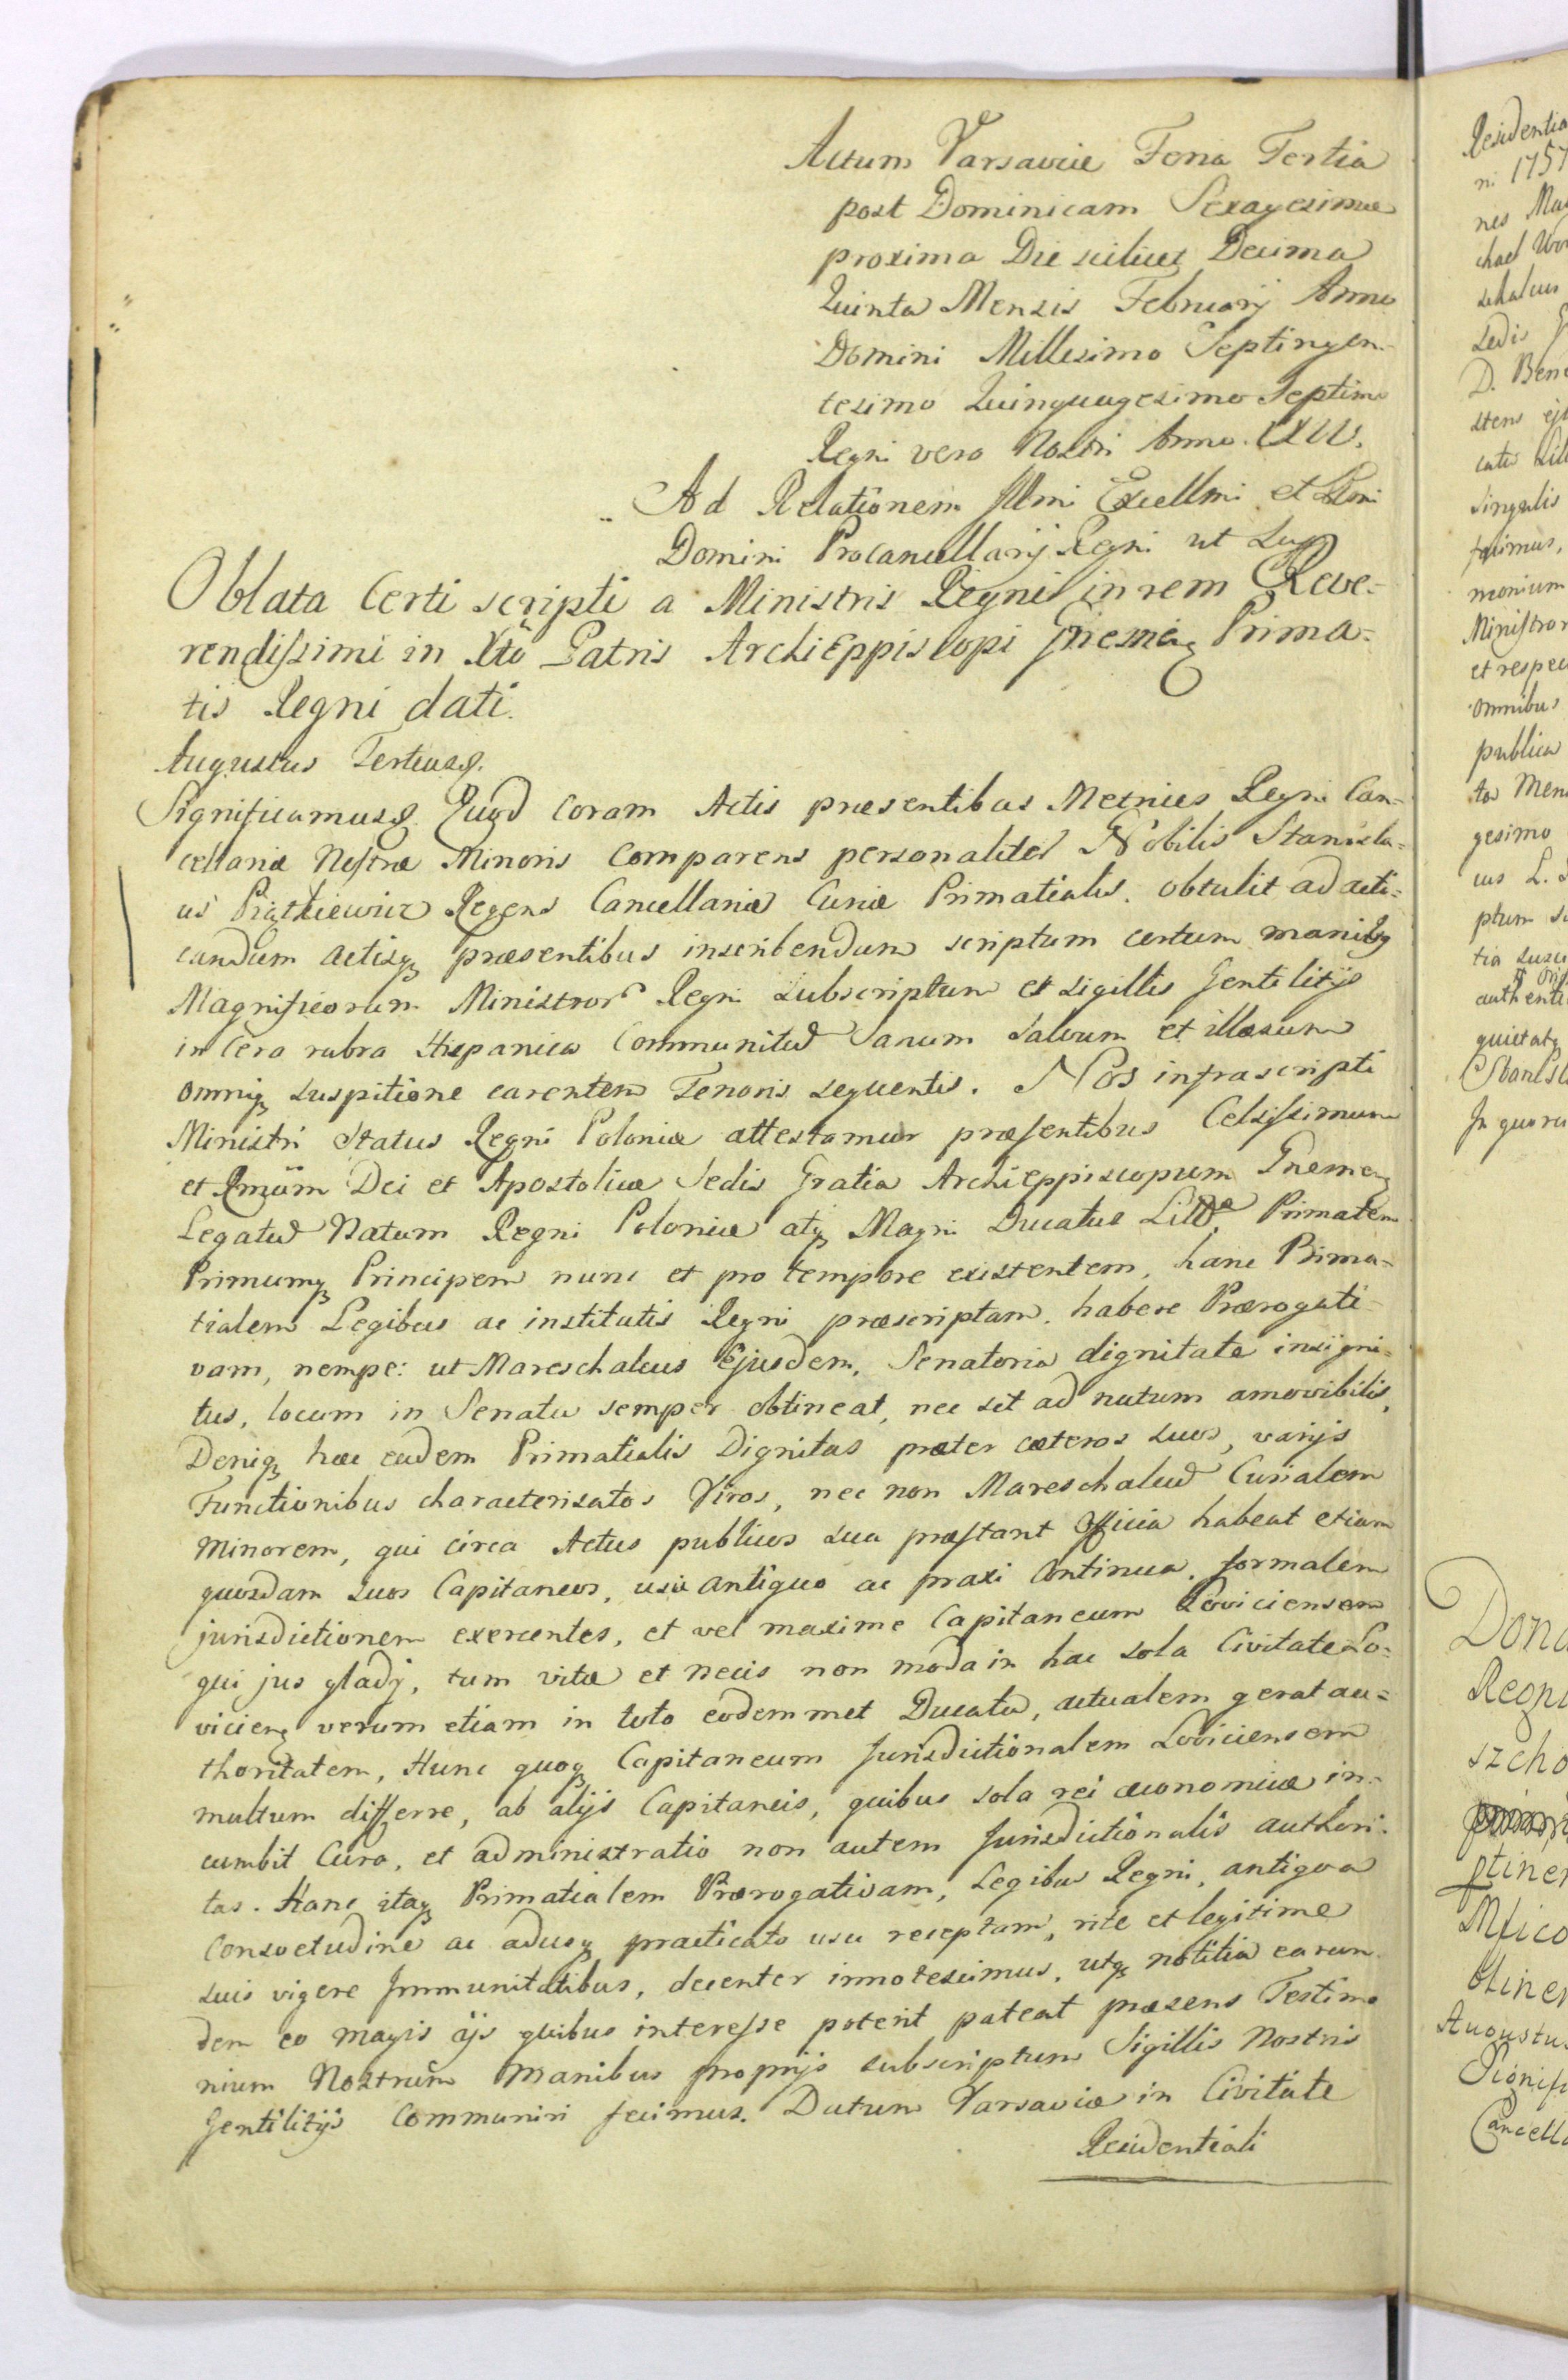 Actum Varsaviæ Feria Tertia
post Dominicam Sexagesimæ
proxima Die scilicet Decima
Quinta Mensis Februarij Anno
Domini Millesimo Septingen-
tesimo Quinquagesimo Septimo
Regni vero Nostri Anno XXIV.
Ad Relationem Illmi Excellmi et
Domini Procancellarij Regni ut supra
Oblata Certi scripti a Ministris Regni in rem Reve-
rendissimi in Xto Patris ArchiEppiscopi Gnesnen Prima-
tis Regni dati.
Augustus Tertius
Significamus Quod coram Actis præsentibus Metrices Regni Can-
cellariæ Nostræ Minoris Comparens personaliter Nobilis Stanisla-
us Piątkiewicz Regens Cancellariæ Curiæ Primatialis. obtulit ad acti-
candum actisq præsentibus inscribendum scriptum certum manibq
Magnificorum Ministror Regni subscriptum et sigillis Gentilitijs
in Cera rubra Hispanica Communitum Sanum salvum et illæsum
omniq suspitione carentem Tenoris sequentis. Nos infrascripti
Ministri Status Regni Poloniæ attestamur præsentibus Celsissimum
et Rmum Dei et Apostolicæ Sedis Gratia ArchiEppiscopum Gnesnen
Legatum Natum Regni Poloniæ atq Magni Ducatus Litt. Primatem
Primumq Principem nunc et pro tempore existentem, hanc Prima-
tialem Legibus ac institutis Regni præscriptam. habere Prærogati-
vam, nempe: ut Mareschalcus Ejusdem, Senatoria dignitate insigni-
tus, locum in Senatu semper obtineat, nec sit ad nutum amovibilis,
Deniq hæc eadem Primatialis Dignitas præter cæteros suos, varijs
Functionibus characterisatos Viros, nec non Mareschalcum Curialem
Minorem, qui circa Actus publicos sua præstant officia habeat etiam
quosdam suos Capitaneos, usu antiquo ac praxi Continua, formalem
jurisdictionem exercentes, et vel maxime Capitaneum Loviciensem
qui jus gladij, tum vitæ et necis non modo in hac sola Civitate Lo-
viciens verum etiam in toto eodemmet Ducatu, actualem gerat au-
thoritatem, Hunc quoq Capitaneum Jurisdictionalem Loviciensem
multum differre, ab alijs Capitaneis, quibus sola rei œconomicæ in-
cumbit Cura, et administratio non autem Jurisdictionalis authori-
tas. Hanc itaq Primatialem Prærogativam, Legibus Regni, antiqua
Consvetudine ac adusq practicato usu receptam, rite et legitime
suis vigere Immunitatibus, decenter innotescimus, utq notitia earun-
dem eo magis ijs quibus interesse poterit pateat præsens Testimo
nium Nostrum Manibus proprijs subscriptum Sigillis Nostris
Gentilitijs Communiri fecimus. Datum Varsaviæ in Civitate
Residentiali
Residentia
ni 1757
nes
chael
schalcus
sedis
D. Bene
stens
catis
singulis
fecimus,
monium
Ministror
et respec
omnibus
publica
tos Men
gesimo
ius L.
ptum
tia
authenti
quietatq
Stanisl
In quoru
Dona
Regni
szcho
ptiner
Mfico
btiner
Augustus
Signifi
Cancella